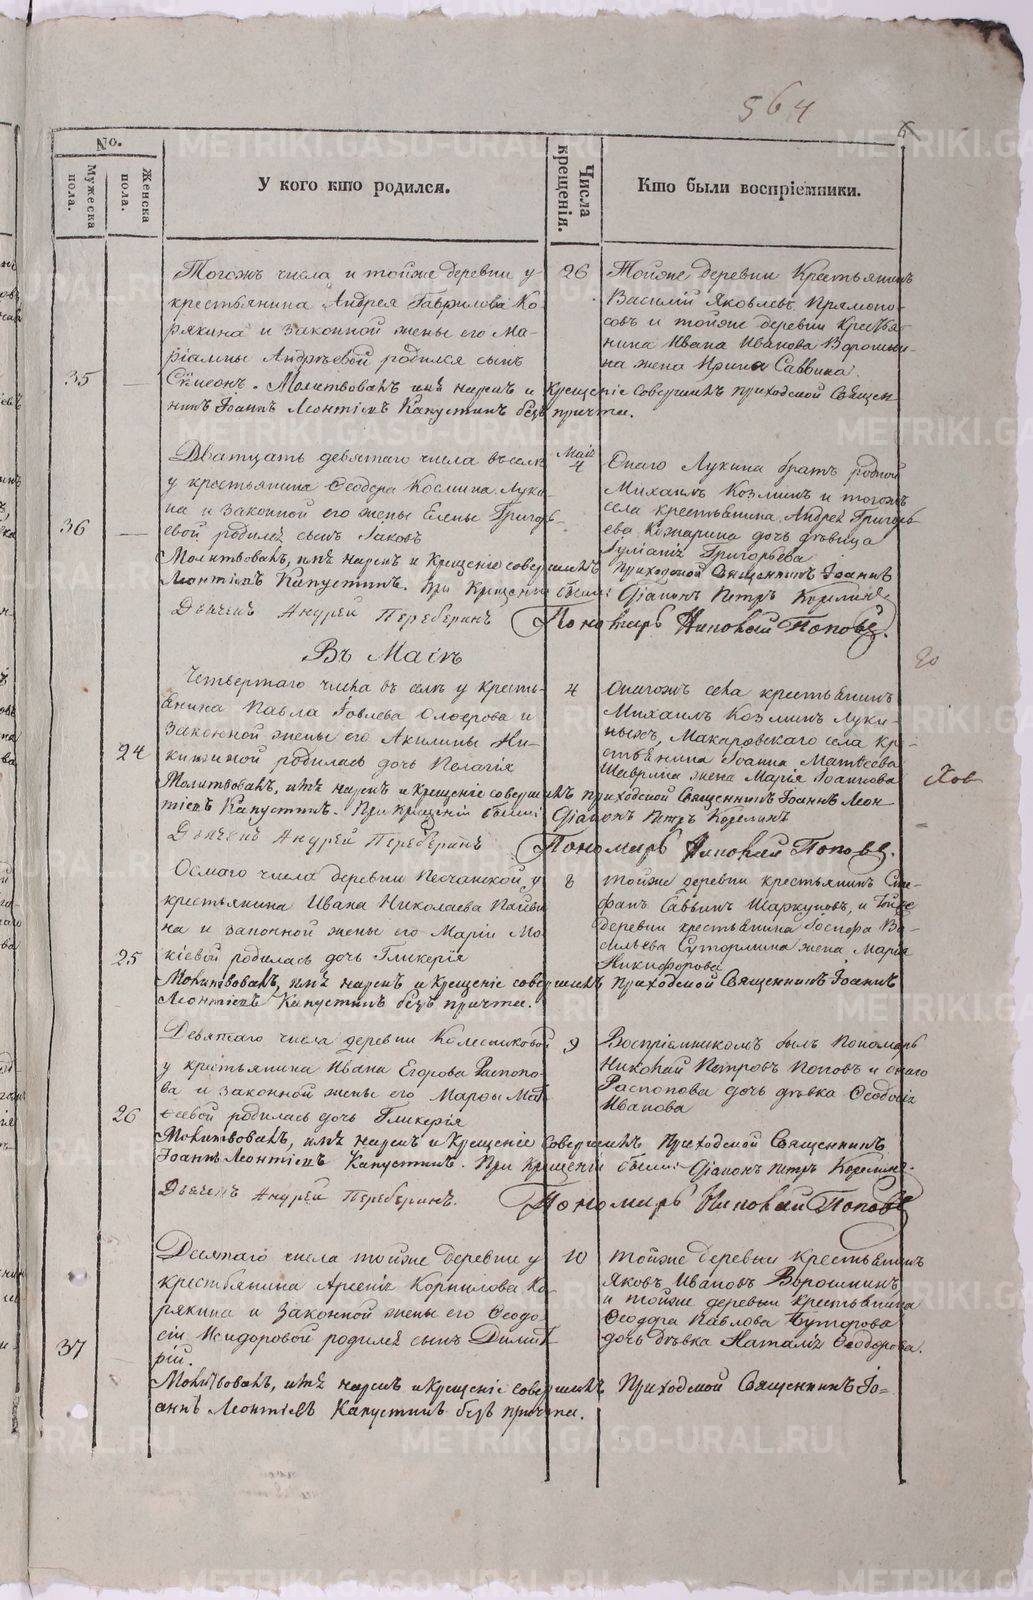 564
No.
Мужеска пола.
Женска пола.
У кого кто родился.
Числа крещенія.
Кто были воспріемники.
35
Тогожъ числа и тойже деревни у
крестьянина Андрея Гаврилова Ко-
рякина и законной жены его Ма-
ріамны Андреевой родился сынъ
Симеонъ. Молитвовалъ имя нарекъ и Крещеніе совершилъ приходской Священ-
никъ Іоаннъ Леонтіевъ Капустинъ безъ причта.
26
Тойже деревни Крестьянинъ
Василій Яковлевъ
и тойже деревни Крестья-
нина Ивана Иванова Ворошни-
на жена Ирина Саввина.
36
Дватцать девятаго числа въ селе
у крестьянина Ѳеодора Космина Луки-
на и законной его жены Елены Григорь-
евой родился сынъ Іаковъ
Молитвовалъ, имя нарекъ и Крещеніе совершилъ приходской Священникъ Іоаннъ
Леонтіевъ Капустинъ. При Крещеніи были: Діаконъ Петръ Корелинъ.
Дьячекъ Андрей Переберинъ Пономарь Николай Поповъ.
Маія
4
Онаго Лукина братъ родной
Михаилъ Козминъ и тогожъ
села крестьянина Андрея Григорь-
ева дочь дѣвица
Іуліанія Григорьева
Въ Маіѣ
24
Четвертаго числа въ селе у кресть-
янина Павла Іовлева и
законной жены его Акилины Ни-
китиной родилась дочь Пелагія
Молитвовалъ, имя нарекъ и Крещеніе совершилъ приходской Священникъ Іоаннъ Леон-
тіевъ Капустинъ. При крещеніи были: Діаконъ Петръ Корелинъ
Дьячекъ Андрей Переберинъ Пономарь Николай Поповъ.
4
Онагожъ села крестьянинъ
Михаилъ Козминъ Луки-
ныхъ, Макаровскаго села кре-
стьянина Іоанна Матвеева
Шаврина жена Марія Іоаннова
25
Осмаго числа деревни Песчанской у
крестьянина Ивана Николаева
на и законной жены его Маріи Мо-
кіевой родилась дочь Гликерія
Молитвовалъ, имя нарекъ и Крещеніе совершилъ приходской Священникъ Іоаннъ
Леонтіевъ Капустинъ безъ причта.
8
Тойже деревни крестьянинъ Сте-
фанъ Саввинъ Шаркуновъ, и тойже
деревни крестьянина Іосифа Ва-
сильева Сутормина жена Марія
Никифорова
26
Девятаго числа деревни Колесниковой
у крестьянина Ивана Егорова Распопо-
ва и законной жены его Марѳы Мат-
ѳеевой родилась дочь Гликерія
Молитвовалъ, имя нарекъ и Крещеніе совершилъ приходской Священникъ
Іоаннъ Леонтіевъ Капустинъ. При крещеніи были: Діаконъ Петръ Корелинъ.
Дьячекъ Андрей Переберинъ. Пономарь Николай Поповъ
9
Воспріемникомъ былъ Пономарь
Николай Петровъ Поповъ и онаго
Распопова дочь дѣвка Ѳеодосія
Иванова
37
Десятаго числа тойже деревни у
крестьянина Арсенія Корнилова Ко-
рякина и законной жены его Ѳеодо-
сіи Исидоровой родился сынъ Димит-
рій.
Молитвовалъ, имя нарекъ и Крещеніе совершилъ Приходской Священникъ Іо-
аннъ Леонтіевъ Капустинъ безъ причта.
10
Тойже деревни крестьянинъ
Яковъ Ивановъ Ворошнинъ
и тойже деревни крестьянина
Ѳеодора Павлова Бугорова
дочь дѣвка Наталія Ѳеодорова.
METRIKI.GASO-URAL.RU